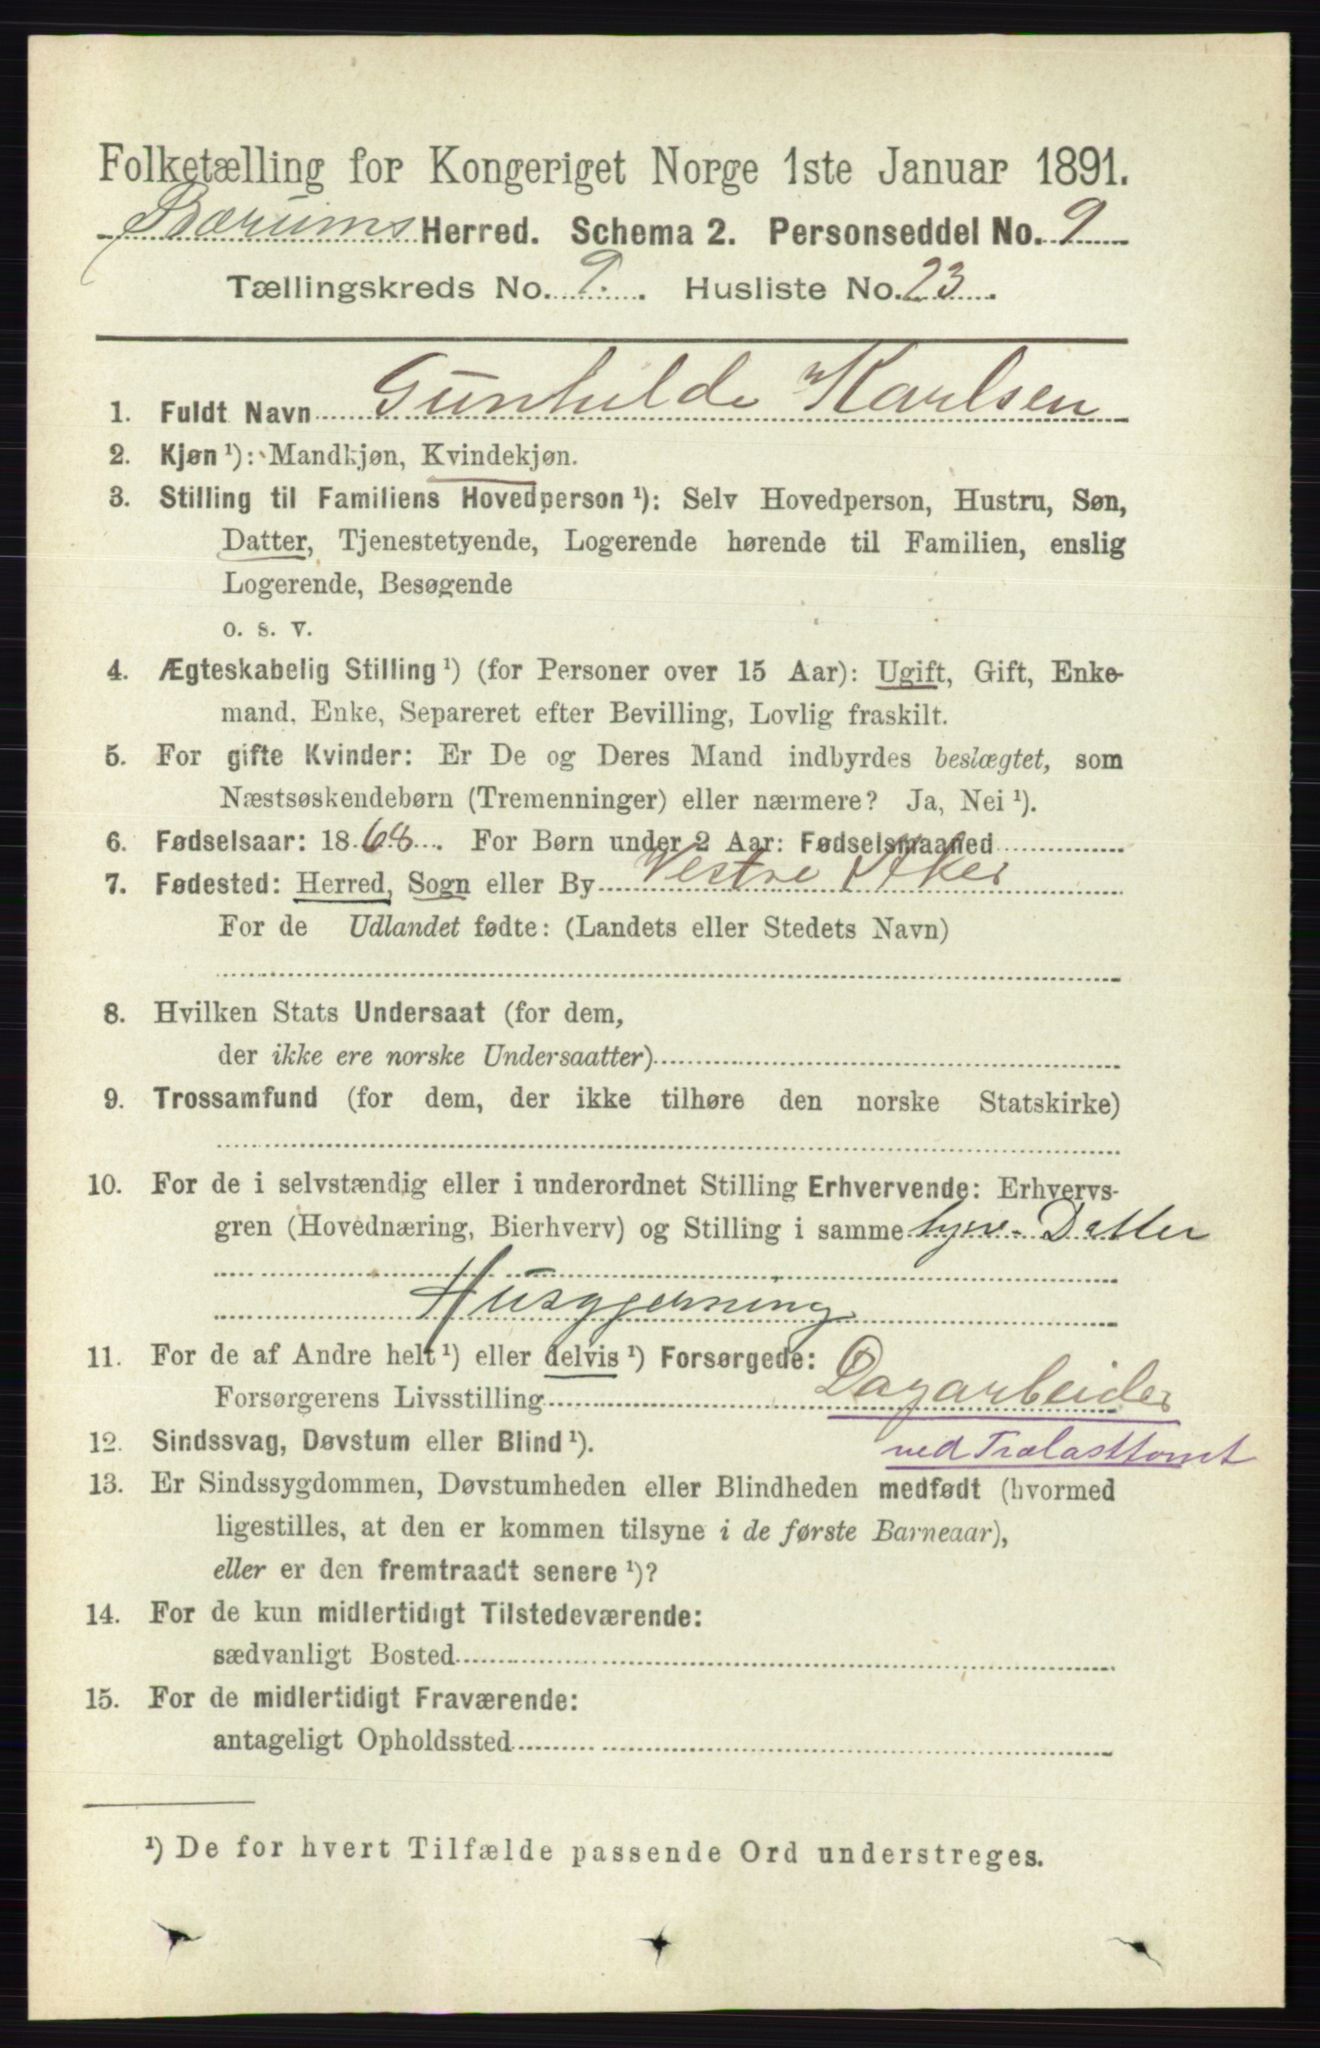 Folketælling for Kongeriget Norge 1ste Januar 1891.
Bærums Herred. Schema 2. Personseddel No. 9
Tællingskreds No. 9. Husliste No. 23.
1. Fuldt Navn Gunhilde Karlsen
2. Kjøn ¹): Mandkjøn, Kvindekjøn.
3. Stilling til Familiens Hovedperson ¹): Selv Hovedperson, Hustru, Søn,
Datter, Tjenestetyende, Logerende hørende til Familien, enslig
Logerende, Besøgende
o. s. v.
4. Ægteskabelig Stilling ¹) (for Personer over 15 Aar): Ugift, Gift, Enke-
mand, Enke, Separeret efter Bevilling, Lovlig fraskilt.
5. For gifte Kvinder: Er De og Deres Mand indbyrdes beslægtet, som
Næstsøskendebørn (Tremenninger) eller nærmere? Ja, Nei ¹).
6. Fødselsaar: 1868. For Børn under 2 Aar: Fødselsmaaned
7. Fødested: Herred, Sogn eller By Vestre Aker
For de Udlandet fødte: (Landets eller Stedets Navn)
8. Hvilken Stats Undersaat (for dem,
der ikke ere norske Undersaatter)
9. Trossamfund (for dem, der ikke tilhøre den norske Statskirke)
10. For de i selvstændig eller i underordnet Stilling Erhvervende: Erhvervs-
gren (Hovednæring, Bierhverv) og Stilling i samme hjev. Datter
Husgjerning
11. For de af Andre helt ¹) eller delvis ¹) Forsørgede:
Forsørgerens Livsstilling Dagarbeider
12. Sindssvag, Døvstum eller Blind ¹). ved Trælasttomt
13. Er Sindssygdommen, Døvstumheden eller Blindheden medfødt (hvormed
ligestilles, at den er kommen tilsyne i de første Barneaar),
eller er den fremtraadt senere ¹)?
14. For de kun midlertidigt Tilstedeværende:
sædvanligt Bosted
15. For de midlertidigt Fraværende:
antageligt Opholdssted
¹) De for hvert Tilfælde passende Ord understreges.